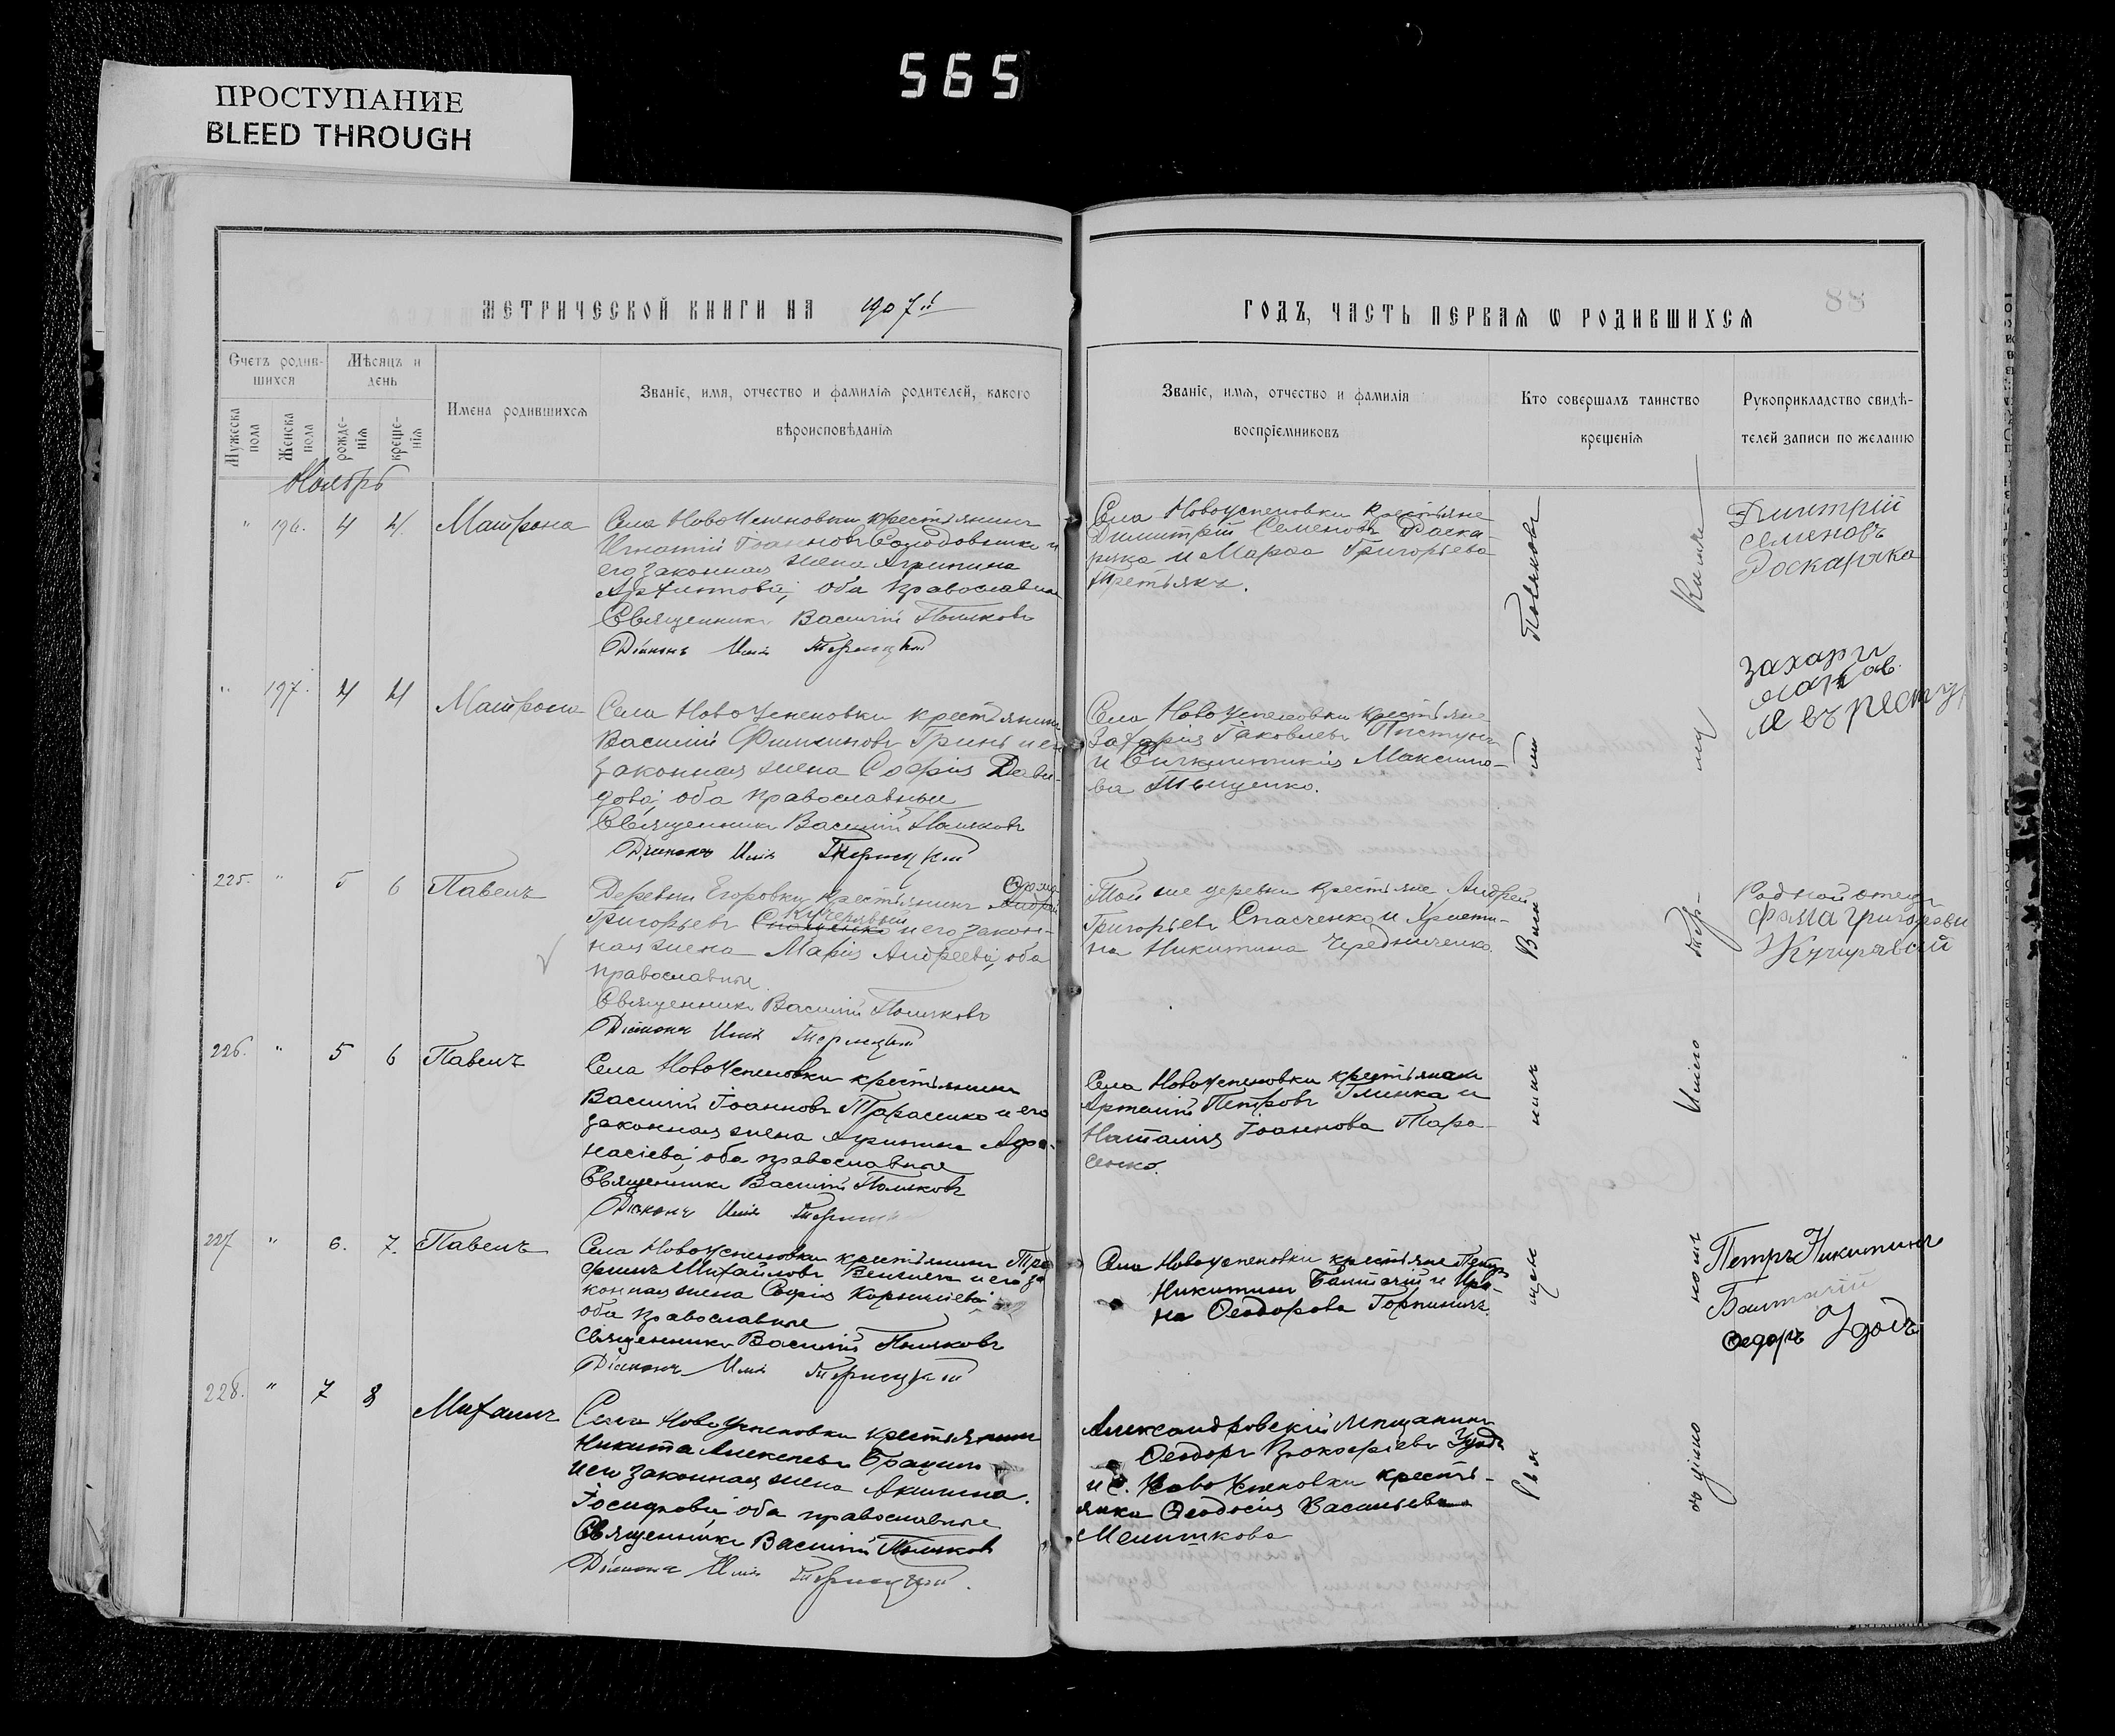 565
ПРОСТУПАНИЕ
BLEED THROUGH
МЕТРИЧЕСКОЙ КНИГИ НА 1907й
ГОДЪ, ЧАСТЬ ПЕРВАЯ Ѡ РОДИВШИХСЯ
88
Счетъ родив-
шихся
Мѣсяцъ и
день
Мужеска
пола
Женска
пола
рожде-
нія
креще-
нія
Имена родившихся
Званіе, имя, отчество и фамилія родителей, какого
вѣроисповѣданія
Званіе, имя, отчество и фамилія
воспріемниковъ
Кто совершалъ таинство
крещенія
Рукоприкладство свидѣ-
телей записи по желанію
Ноябрь
" 196. 4 4. Матрона
Села Новоуспеновки крестьянинъ
Игнатій Іоанновъ и
его законная жена Агрипина
оба православные
Священникъ Василій Поляковъ
Діаконъ Илія Терлецкій
Села Новоуспеновки крестьяне
Димитрій Семеновъ Роска-
ряка и Марѳа Григорьева
Третьякъ.
Дмитрій
Семеновъ
Роскаряка
" 197. 4 4 Матрона
Села Новоуспеновки крестьянинъ
Василій Филиповъ Гринь и его
законная жена Софія Дави-
дова, оба православные
Священникъ Василій Поляковъ
Діаконъ Илія Терлецкій
Села Новоуспеновки крестьяне
Захарія Іаковлевъ Пистунъ
и Максимо-
ва Тищенко.
Захари
225. " 5 6 Павелъ
Деревни Егоровки крестьянинъ
Григорьевъ Кучерявый и его закон-
ная жена Марія Андреева, оба
православные.
Священникъ Василій Поляковъ
Діаконъ Илія Терлецкій
Той же деревни крестьяне Андрей
Григорьевъ Спасченко и Христи-
на Никитина Чередниченко.
Родной отецъ
Фома Григорови
Кучирявый
226. " 5 6 Павелъ
Села Новоуспеновки крестьянинъ
Василій Іоанновъ Тарасенко и его
законная жена Агрипина Афа-
насіева, оба православные
Священникъ Василій Поляковъ
Діаконъ Илія Терлецкій
Села Новоуспеновки крестьяне
Артемій Петровъ Глинка и
Наталія Іоаннова Тара-
сенко.
227 " 6. 7. Павелъ
Села Новоуспеновки крестьянинъ Тро-
фимъ Михайловъ и его за
конная жена Софія Корниліева
оба православные
Священникъ Василій Поляковъ
Діаконъ Илія Терлецкій
Села Новоуспеновки крестьяне Петръ
Никитинъ Балтачій и Ири-
на Ѳеодорова Горпиничъ.
Петръ Никитинъ
Балтачій
Федоръ Удодъ
228. " 7 8 Михаилъ
Села Новоуспеновки крестьянинъ
Никита Алексеевъ
и его законная жена Акилина
Іосифова, оба православные
Священникъ Василій Поляковъ
Діаконъ Илія Терлецкій.
Александровскій мѣщанинъ
Ѳеодоръ Прокофіевъ Удодъ
и с. Новоуспеновки кресть-
янка Ѳеодосія Васильева
Мелишкова